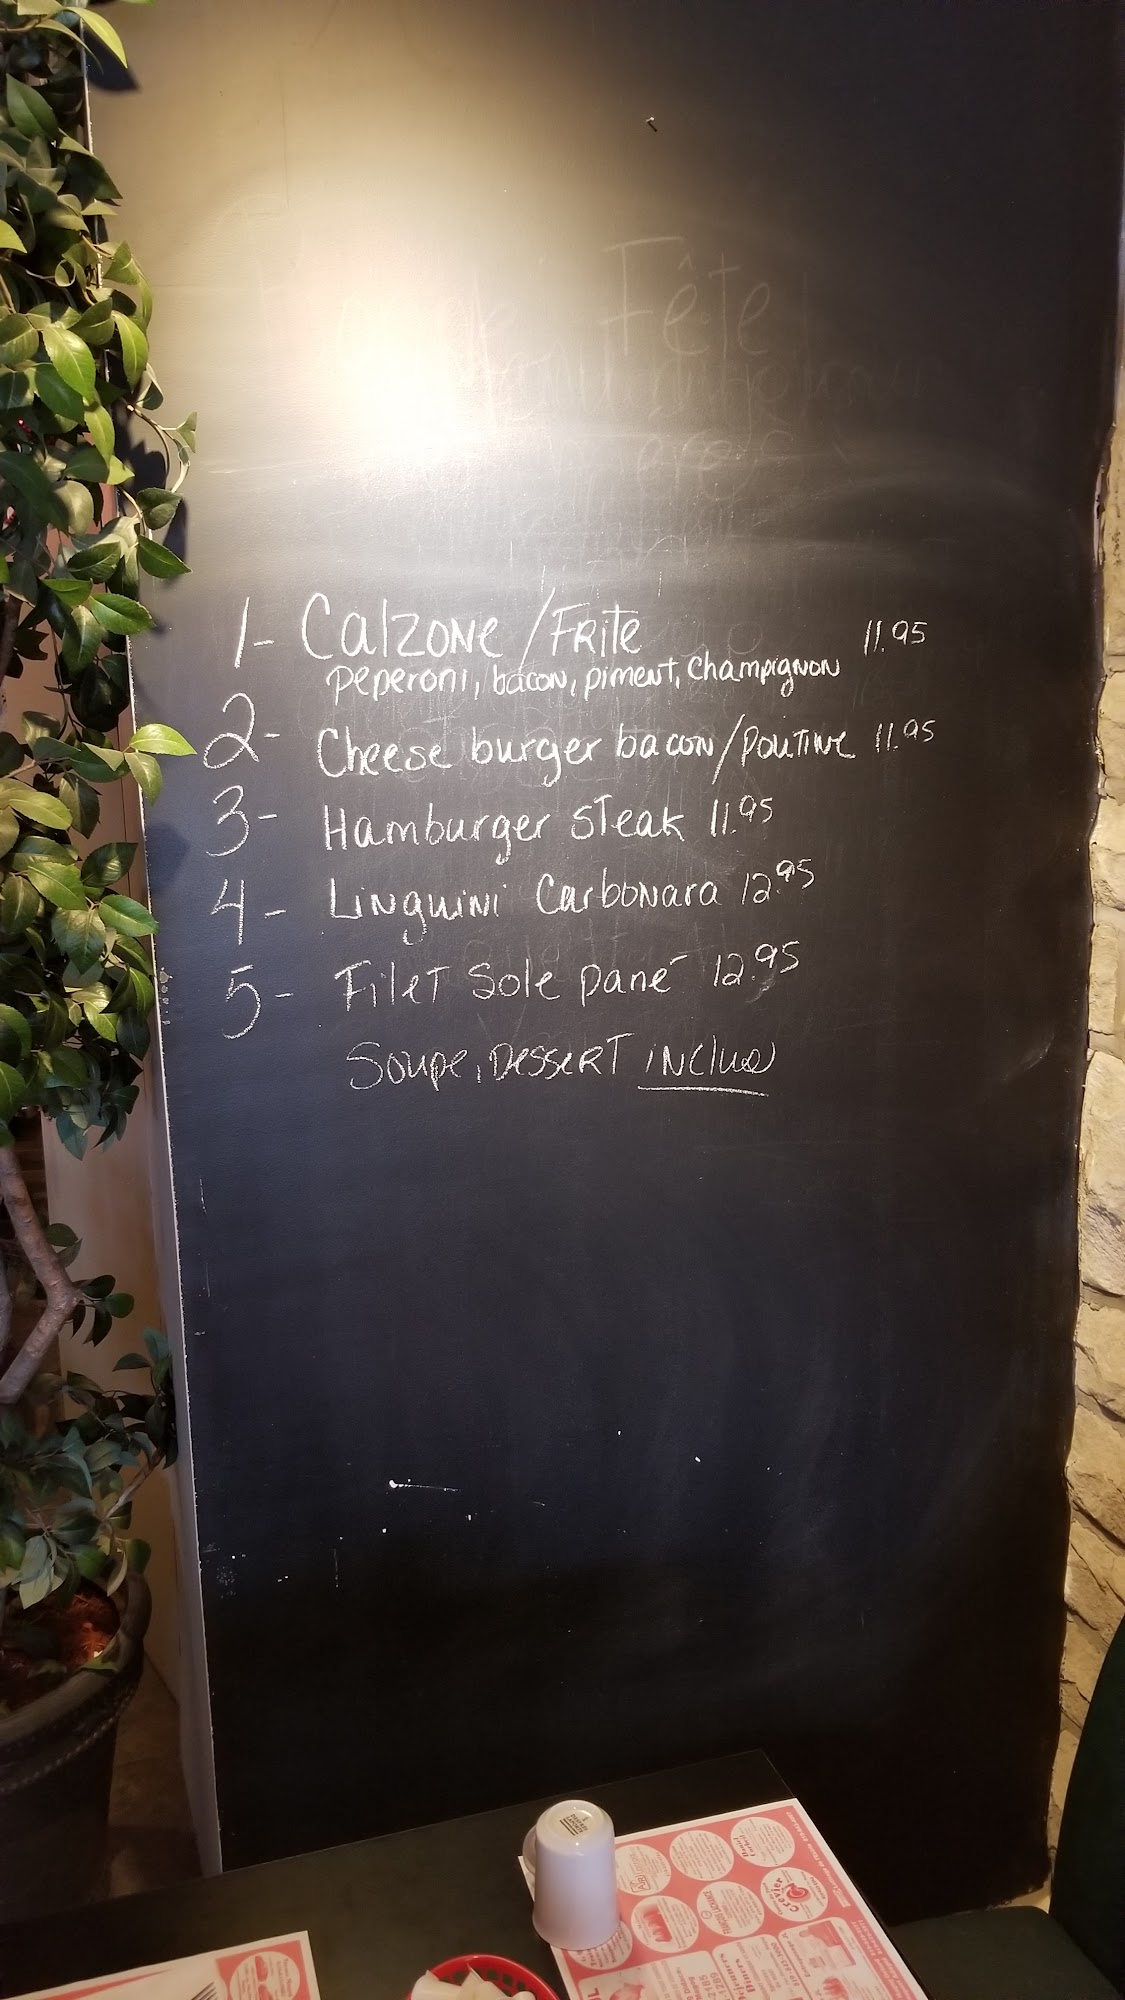 Fête
1- Calzone/Frite 11.95
peperoni, bacon, piment, champignon
2- Cheese burger bacon/poutine 11.95
3- Hamburger steak 11.95
4- Linguini Carbonara 12.95
5- Filet sole pané 12.95
Soupe, Dessert inclus
Crevier